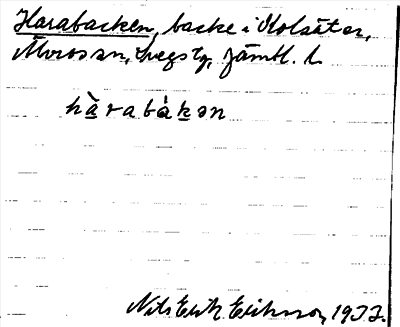 Harabacken, backe i Kolsäter,
Älvros sn, Svegs tg, Jämtl. l.
hàrabákən
Nils Erik Eriksson, 1933.